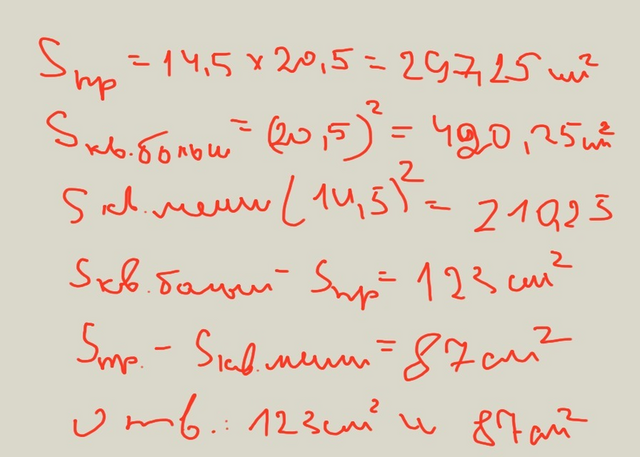 Sпр = 14,5 × 20,5 = 297,25 см²
Sкв.больш = (20,5)² = 420,25 см²
Sкв.меньш (14,5)² = 210,25
Sкв.больш - Sпр = 123 см²
Sпр. - Sкв.меньш = 87 см²
Отв.: 123 см² и 87 см²